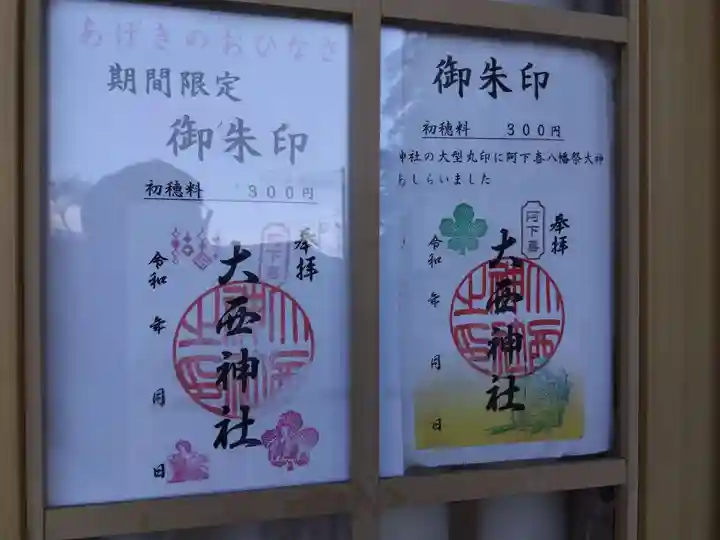 あげきのおひなさ
期間限定
御朱印
初穂料 300円
奉拝
阿下喜
大西神社
令和 年 月 日
御朱印
初穂料 300円
神社の大型丸印に阿下喜八幡祭大神
あしらいました
奉拝
阿下喜
大西神社
令和 年 月 日